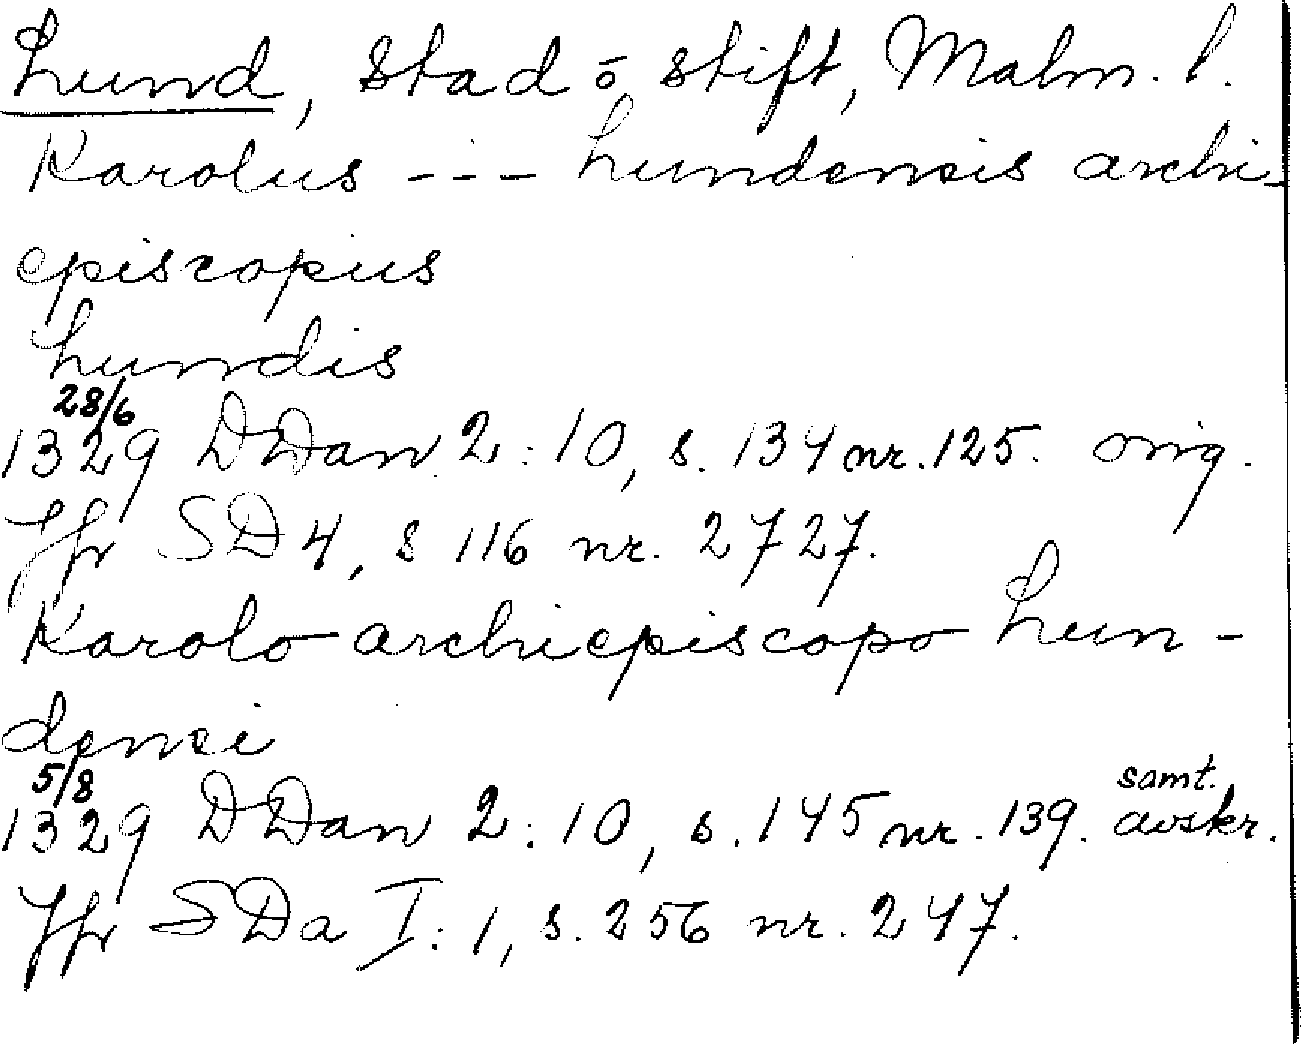 Lund, Stad o, stift, Malm. l.
Karolus --- Lundensis archi-
episcopus
Lundis
28/6
1329 DDan 2:10, s. 134 nr. 125. orig.
Jfr SD 4, s 116 nr. 2727.
Karolo archiepiscopo Lun-
densi
5/8
1329 DDan 2:10, s. 145 nr. 139. samt. avskr.
Jfr SDa I:1, s. 256 nr. 247.